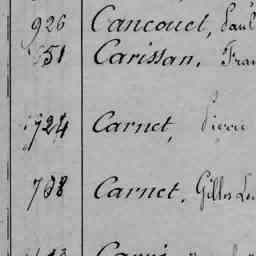 926 Cancouet, Paul
851 Carissan, Fran
724 Carnet, Pierre
738 Carnet, Gilles Lou